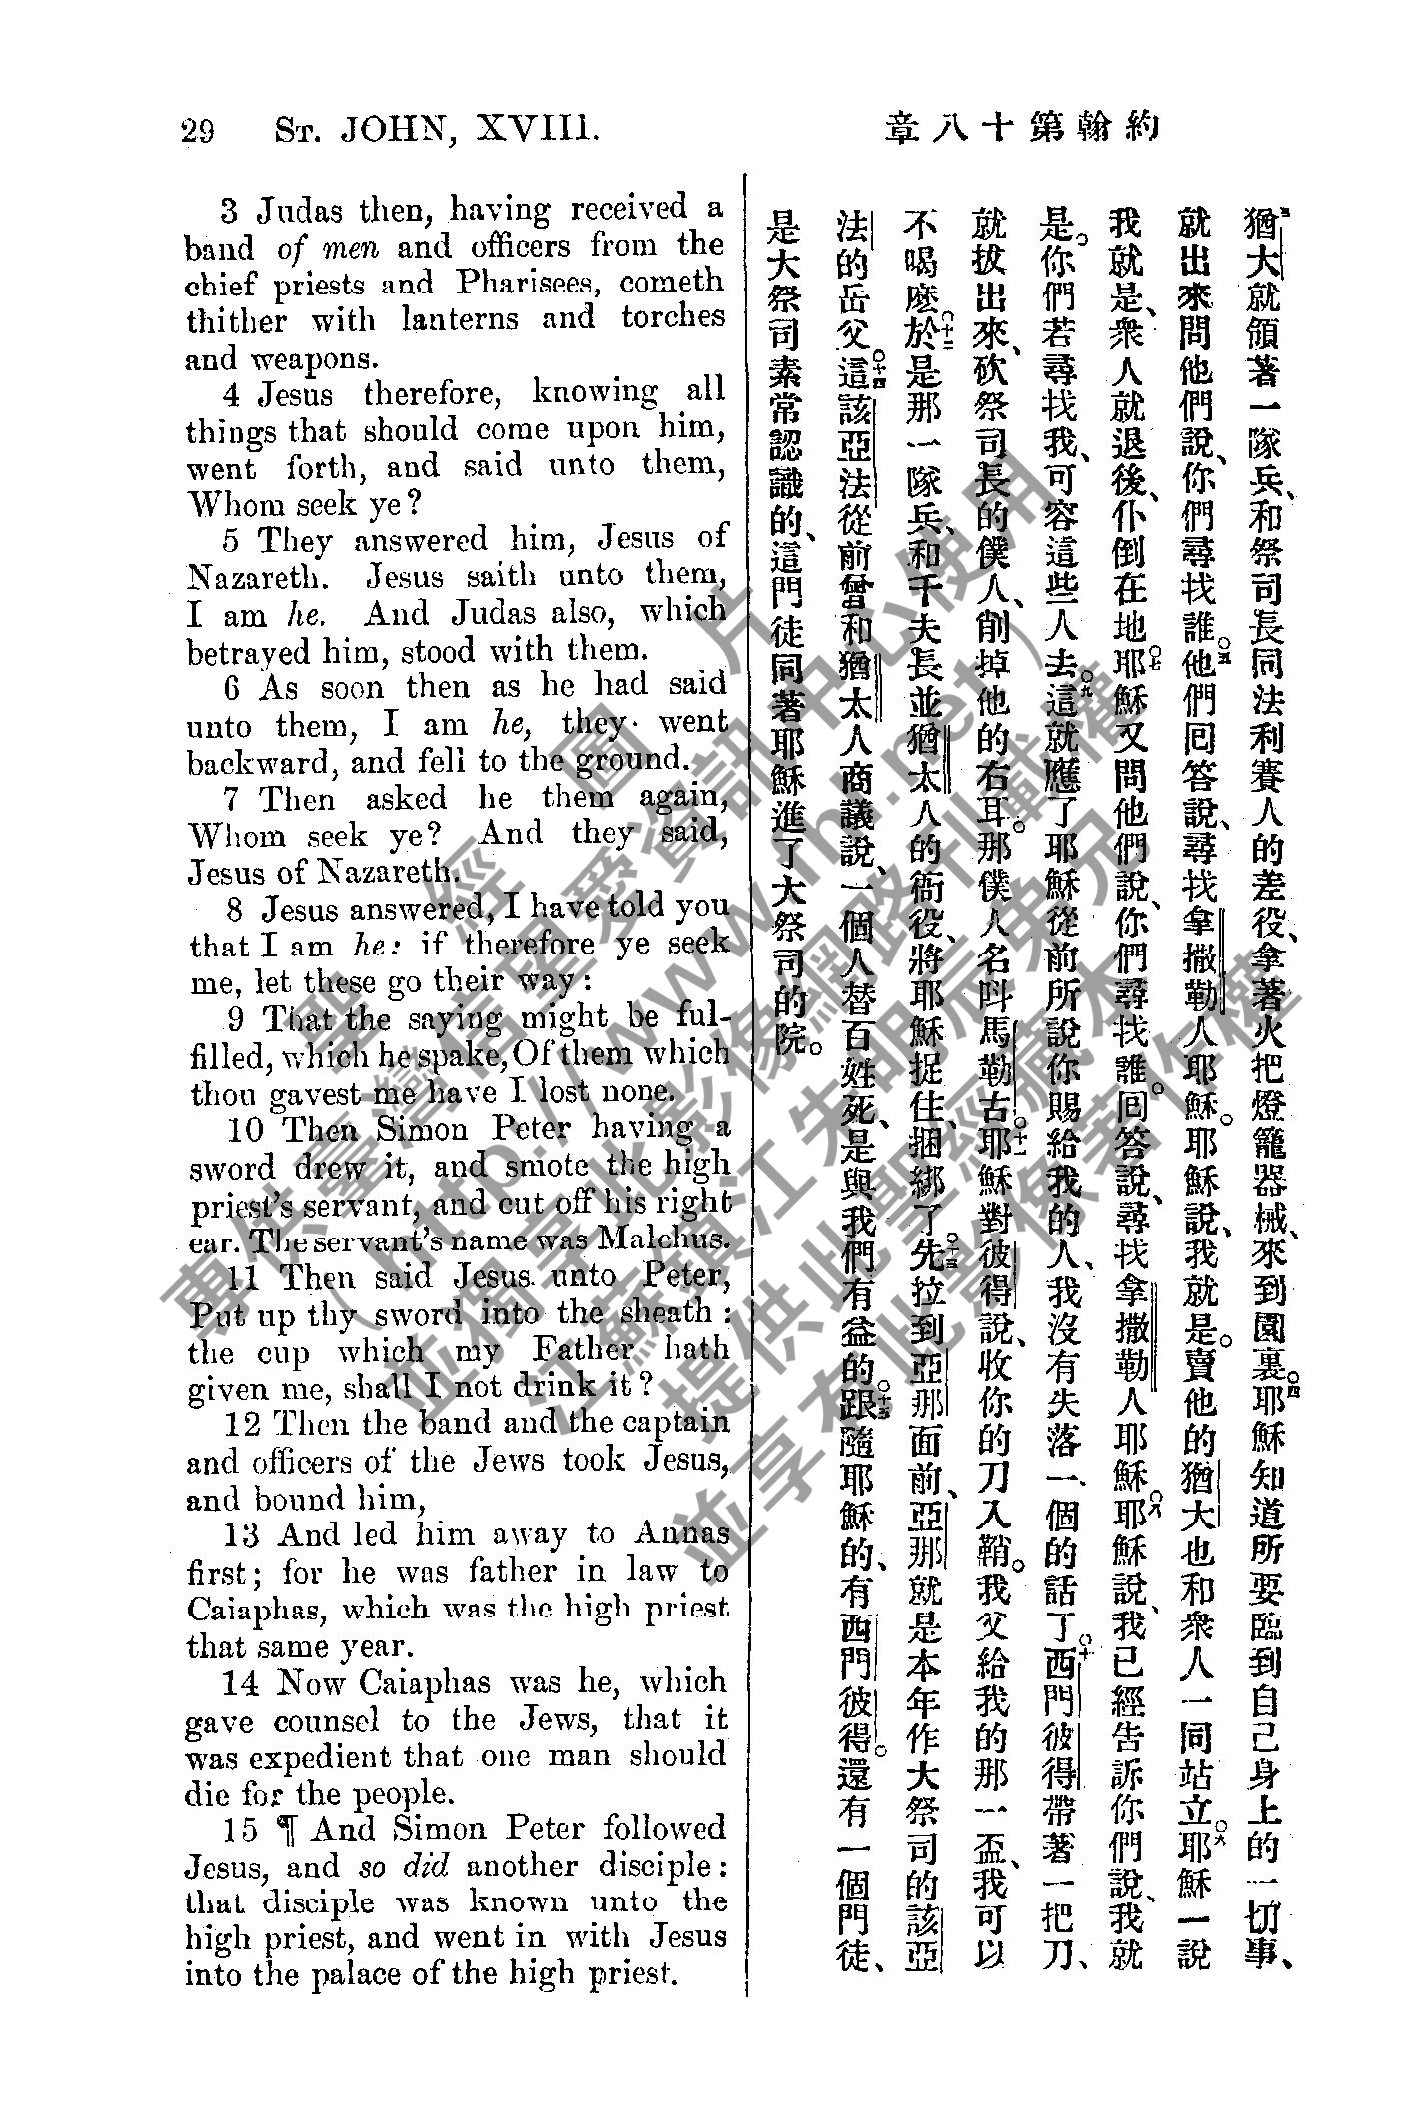 29 St. JOHN, XVIII.
約翰第十八章
3 Judas then, having received a
band of men and officers from the
chief priests and Pharisees, cometh
thither with lanterns and torches
and weapons.
4 Jesus therefore, knowing all
things that should come upon him,
went forth, and said unto them,
Whom seek ye?
5 They answered him, Jesus of
Nazareth. Jesus saith unto them,
I am he. And Judas also, which
betrayed him, stood with them.
6 As soon then as he had said
unto them, I am he, they went
backward, and fell to the ground.
7 Then asked he them again,
Whom seek ye? And they said,
Jesus of Nazareth.
8 Jesus answered, I have told you
that I am he: if therefore ye seek
me, let these go their way:
9 That the saying might be ful-
filled, which he spake, Of them which
thou gavest me have I lost none.
10 Then Simon Peter having a
sword drew it, and smote the high
priest's servant, and cut off his right
ear. The servant's name was Malchus.
11 Then said Jesus unto Peter,
Put up thy sword into the sheath:
the cup which my Father hath
given me, shall I not drink it?
12 Then the band and the captain
and officers of the Jews took Jesus,
and bound him,
13 And led him away to Annas
first; for he was father in law to
Caiaphas, which was the high priest
that same year.
14 Now Caiaphas was he, which
gave counsel to the Jews, that it
was expedient that one man should
die for the people.
15 ¶ And Simon Peter followed
Jesus, and so did another disciple:
that disciple was known unto the
high priest, and went in with Jesus
into the palace of the high priest.
三猶大就領著一隊兵、和祭司長同法利賽人的差役、拿著火把燈籠器械、來到園裏。四耶穌知道所要臨到自己身上的一切事、
就出來問他們說、你們尋找誰。五他們囘答說、尋找拿撒勒人耶穌。耶穌說、我就是。賣他的猶大也和衆人一同站立。六耶穌一說
我就是、衆人就退後、仆倒在地。七耶穌又問他們說、你們尋找誰。囘答說、尋找拿撒勒人耶穌。八耶穌說、我已經告訴你們說、我就
是。你們若尋找我、可容這些人去。九這就應了耶穌從前所說你賜給我的人、我沒有失落一個的話了。十西門彼得帶著一把刀、
就拔出來、砍祭司長的僕人、削掉他的右耳。那僕人名呌馬勒古。十一耶穌對彼得說、收你的刀入鞘。我父給我的那一盃、我可以
不喝麽。十二於是那一隊兵、和千夫長並猶太人的衙役、將耶穌捉住、捆綁了。十三先拉到亞那面前、亞那就是本年作大祭司的該亞
法的岳父。十四這該亞法從前曾和猶太人商議說、一個人替百姓死、是與我們有益的。十五跟隨耶穌的、有西門彼得。還有一個門徒、
是大祭司素常認識的、這門徒同著耶穌進了大祭司的院。
聖經圖片
專供臺灣信望愛資訊中心使用
( http://www.fhl.net )
並獨享此影像網路刊載權
江蘇鎮江朱明宗弟兄
提供此聖經藏本
並享有此影像著作權